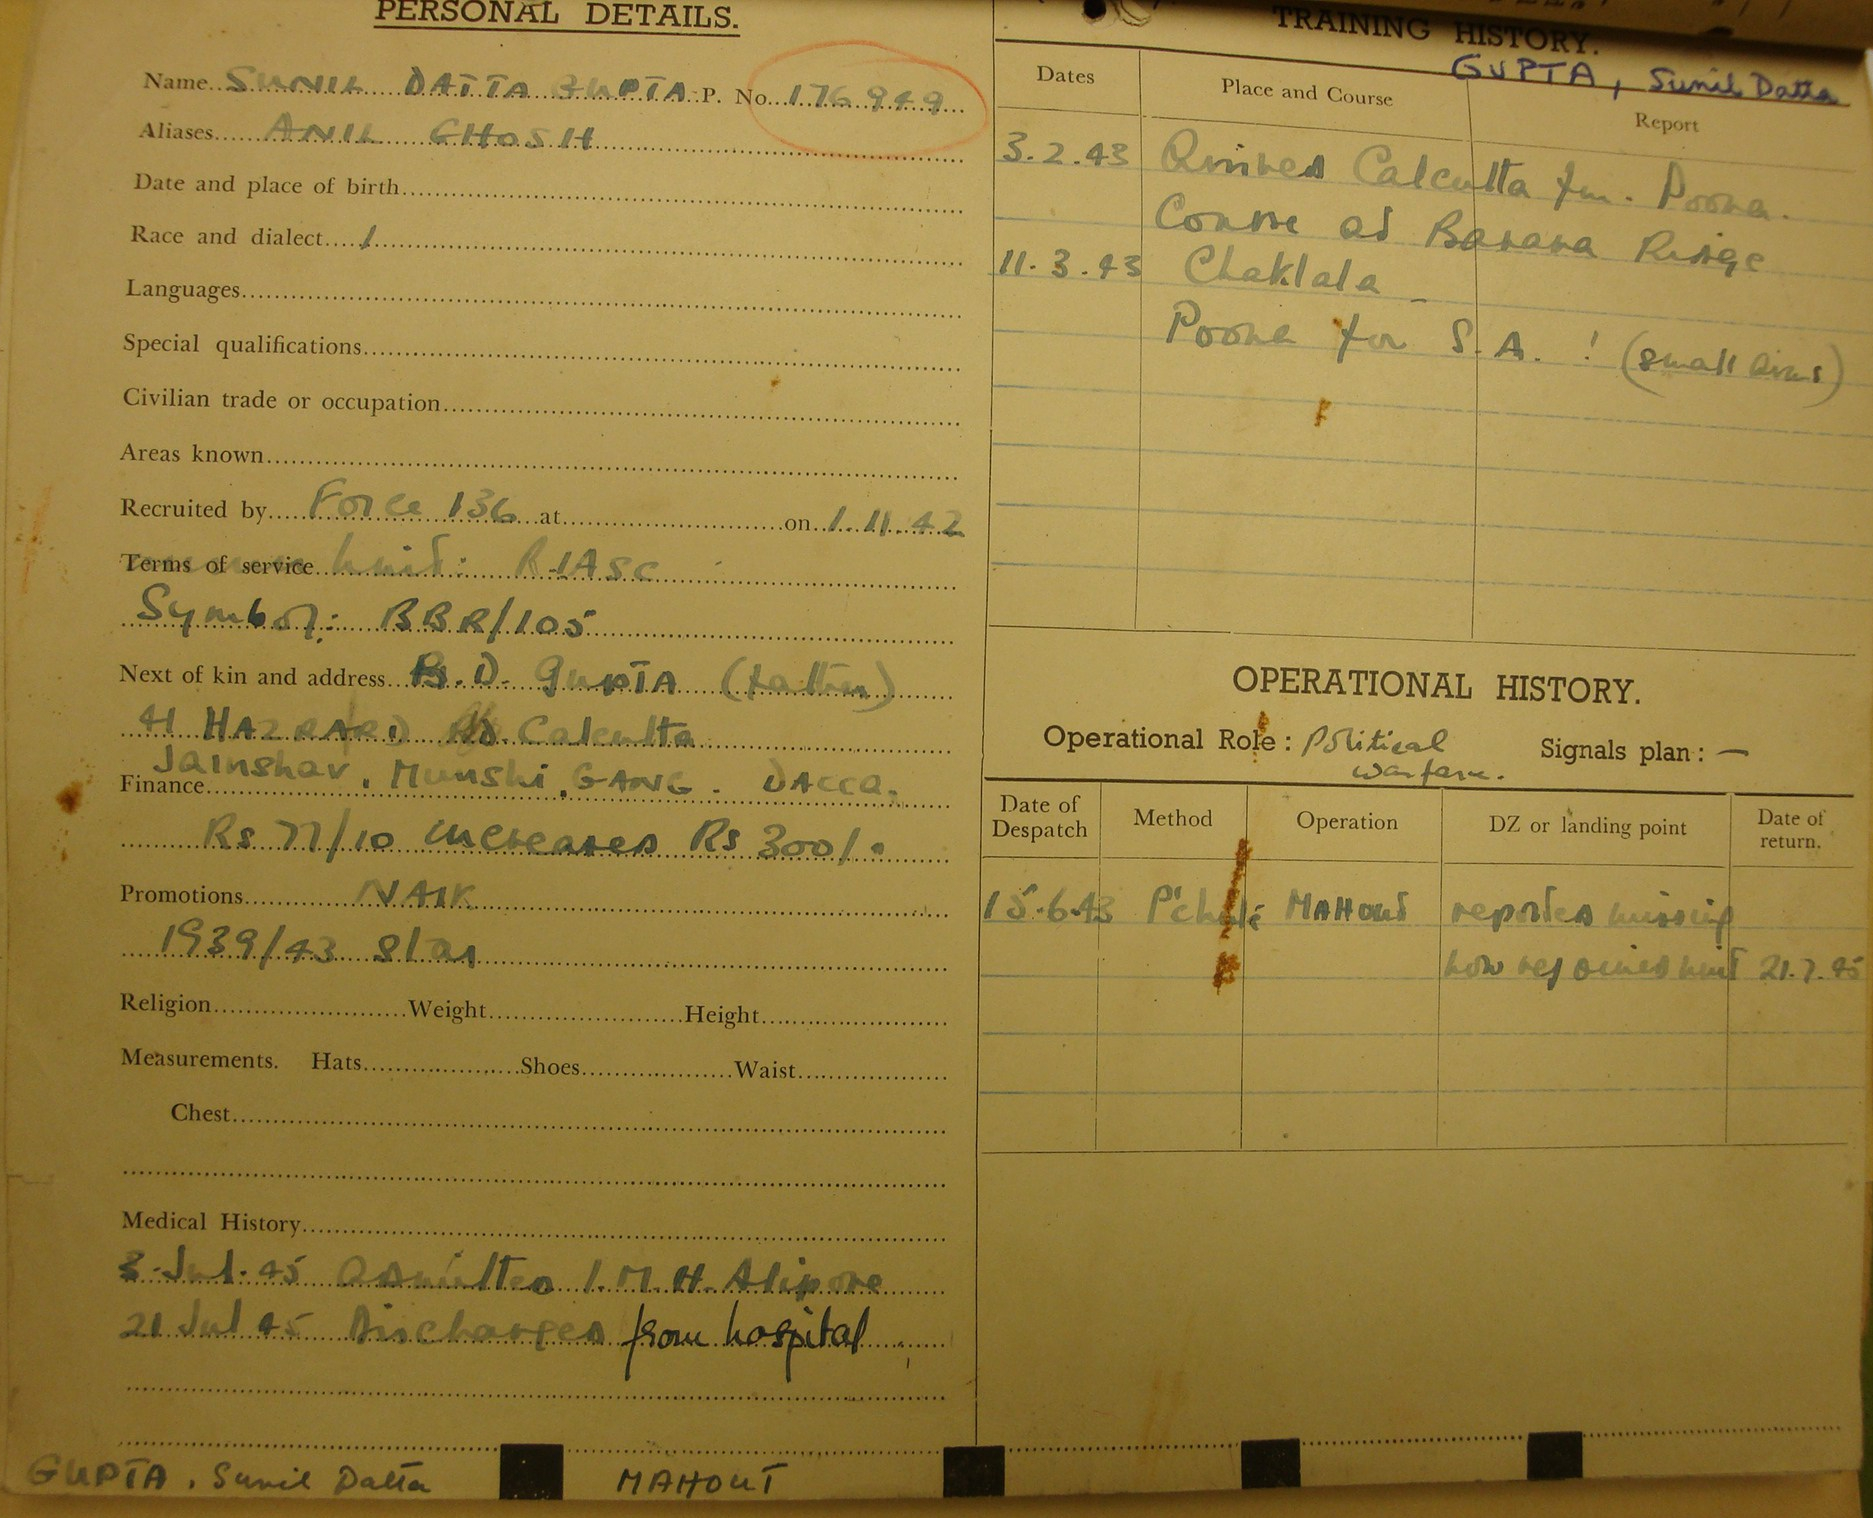 PERSONAL DETAILS.
Name..SUNIL DATTA GUPTA P. No. 176949
Aliases ANIL GHOSH
Date and place of birth
Race and dialect /
Languages
Special qualifications
Civilian trade or occupation
Areas known
Recruited by Force 136 at on 1.11.42
Terms of service unit: RIASC
Symbol: BBR/105
Next of kin and address B.D. GUPTA (father)
41 HAZRARD RD. Calcutta
Jainshar, Munshi, GANG. DACCA.
Finance
Rs 77/10 increased Rs 300/.
Promotions NAIK
1939/43 Star
Religion Weight Height
Measurements. Hats Shoes Waist
Chest
Medical History
3.Jul.45 Admitted I.M.H. Alipore
21 Jul 45 Discharged from hospital
GUPTA, Sunil Datta MAHOUT
TRAINING HISTORY.
GUPTA, Sunil Datta
Dates Place and Course Report
3.2.43 Arrived Calcutta fm. Poona.
Course at Banana Ridge
11.3.43 Chaklala -
Poona for S.A. ! (small arms)
OPERATIONAL HISTORY.
Operational Role: Political Signals plan: —
warfare.
Date of Despatch Method Operation DZ or landing point Date of return.
15.6.43 P'chute MAHOUT reported missing
now rejoined unit 21.7.45